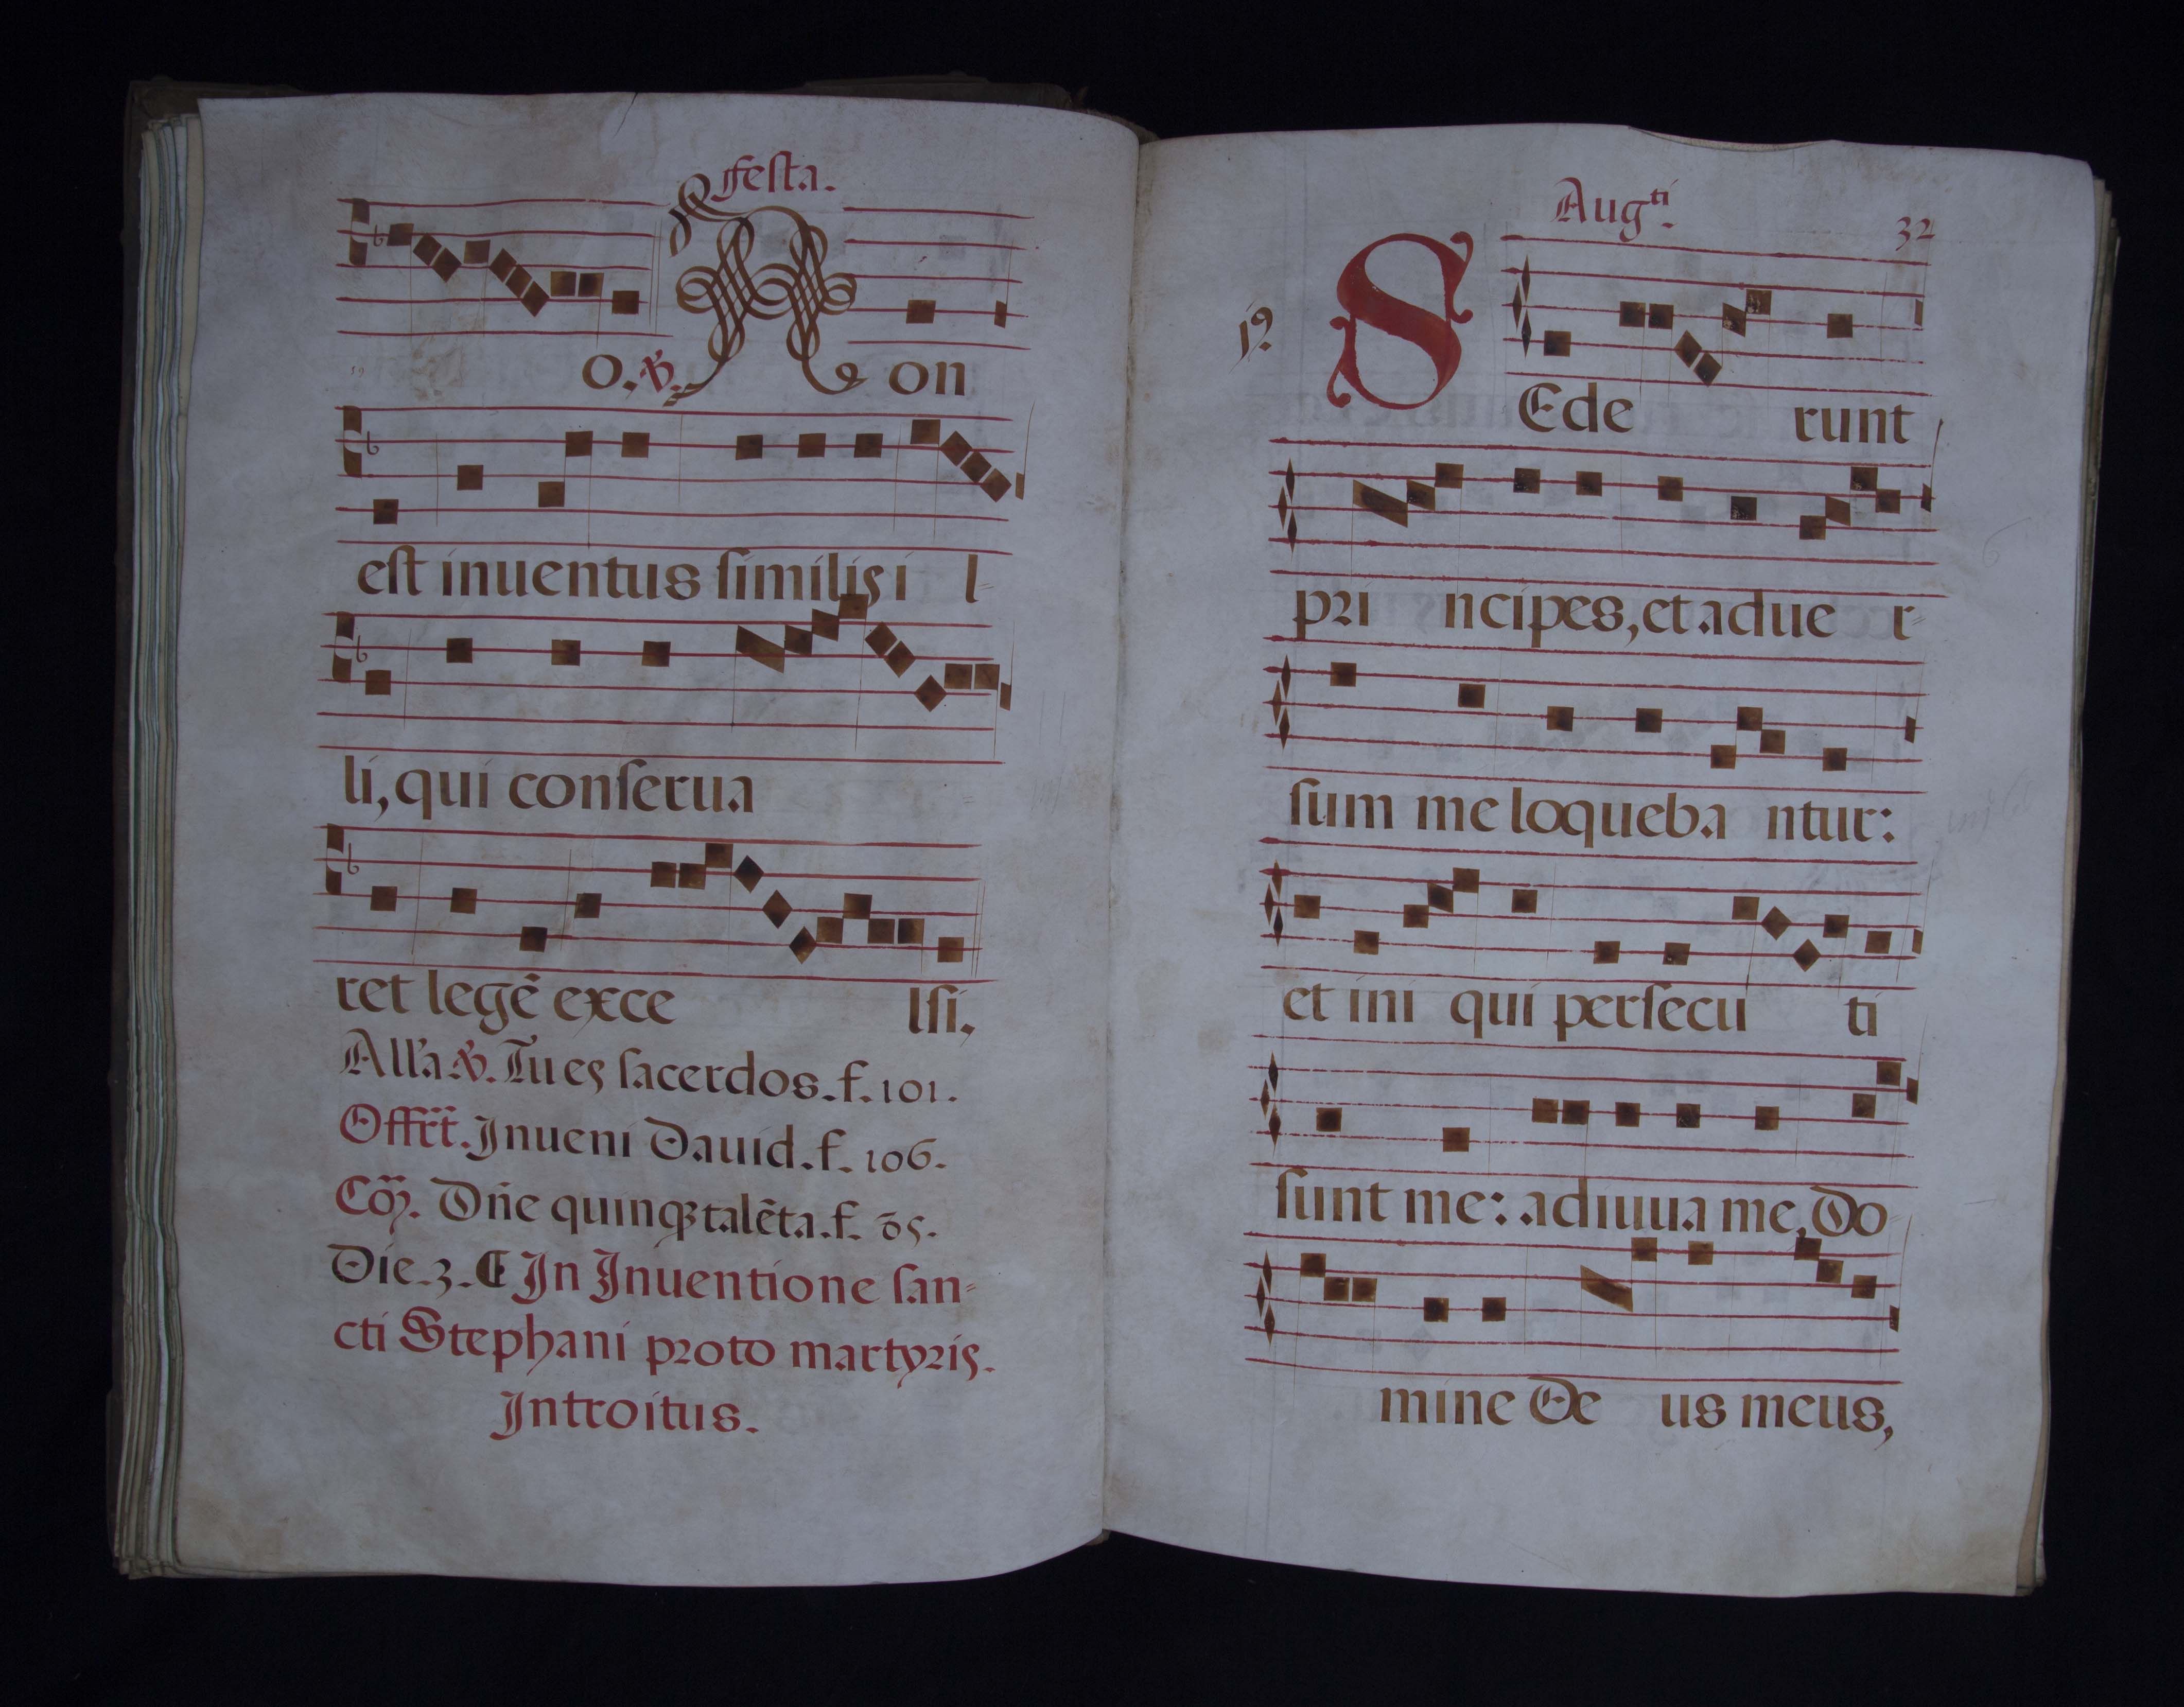 festa.
o. ℣. Non
est inuentus similis i l-
li, qui conserua
ret legẽ exce lsi,
All'a ℣. Tu es sacerdos. f. 101.
Offēt. Inueni Dauid. f. 106.
Cõ. Dñe quinqꝫ talẽta. f.
Die. 3. In Inuentione san-
cti Stephani proto martyris.
Introitus.
Augti.
32
SEde runt
pri ncipes, et adue r-
sum me loqueba ntur:
et ini qui persecu ti
sunt me: adiuua me, Do
mine De us meus,